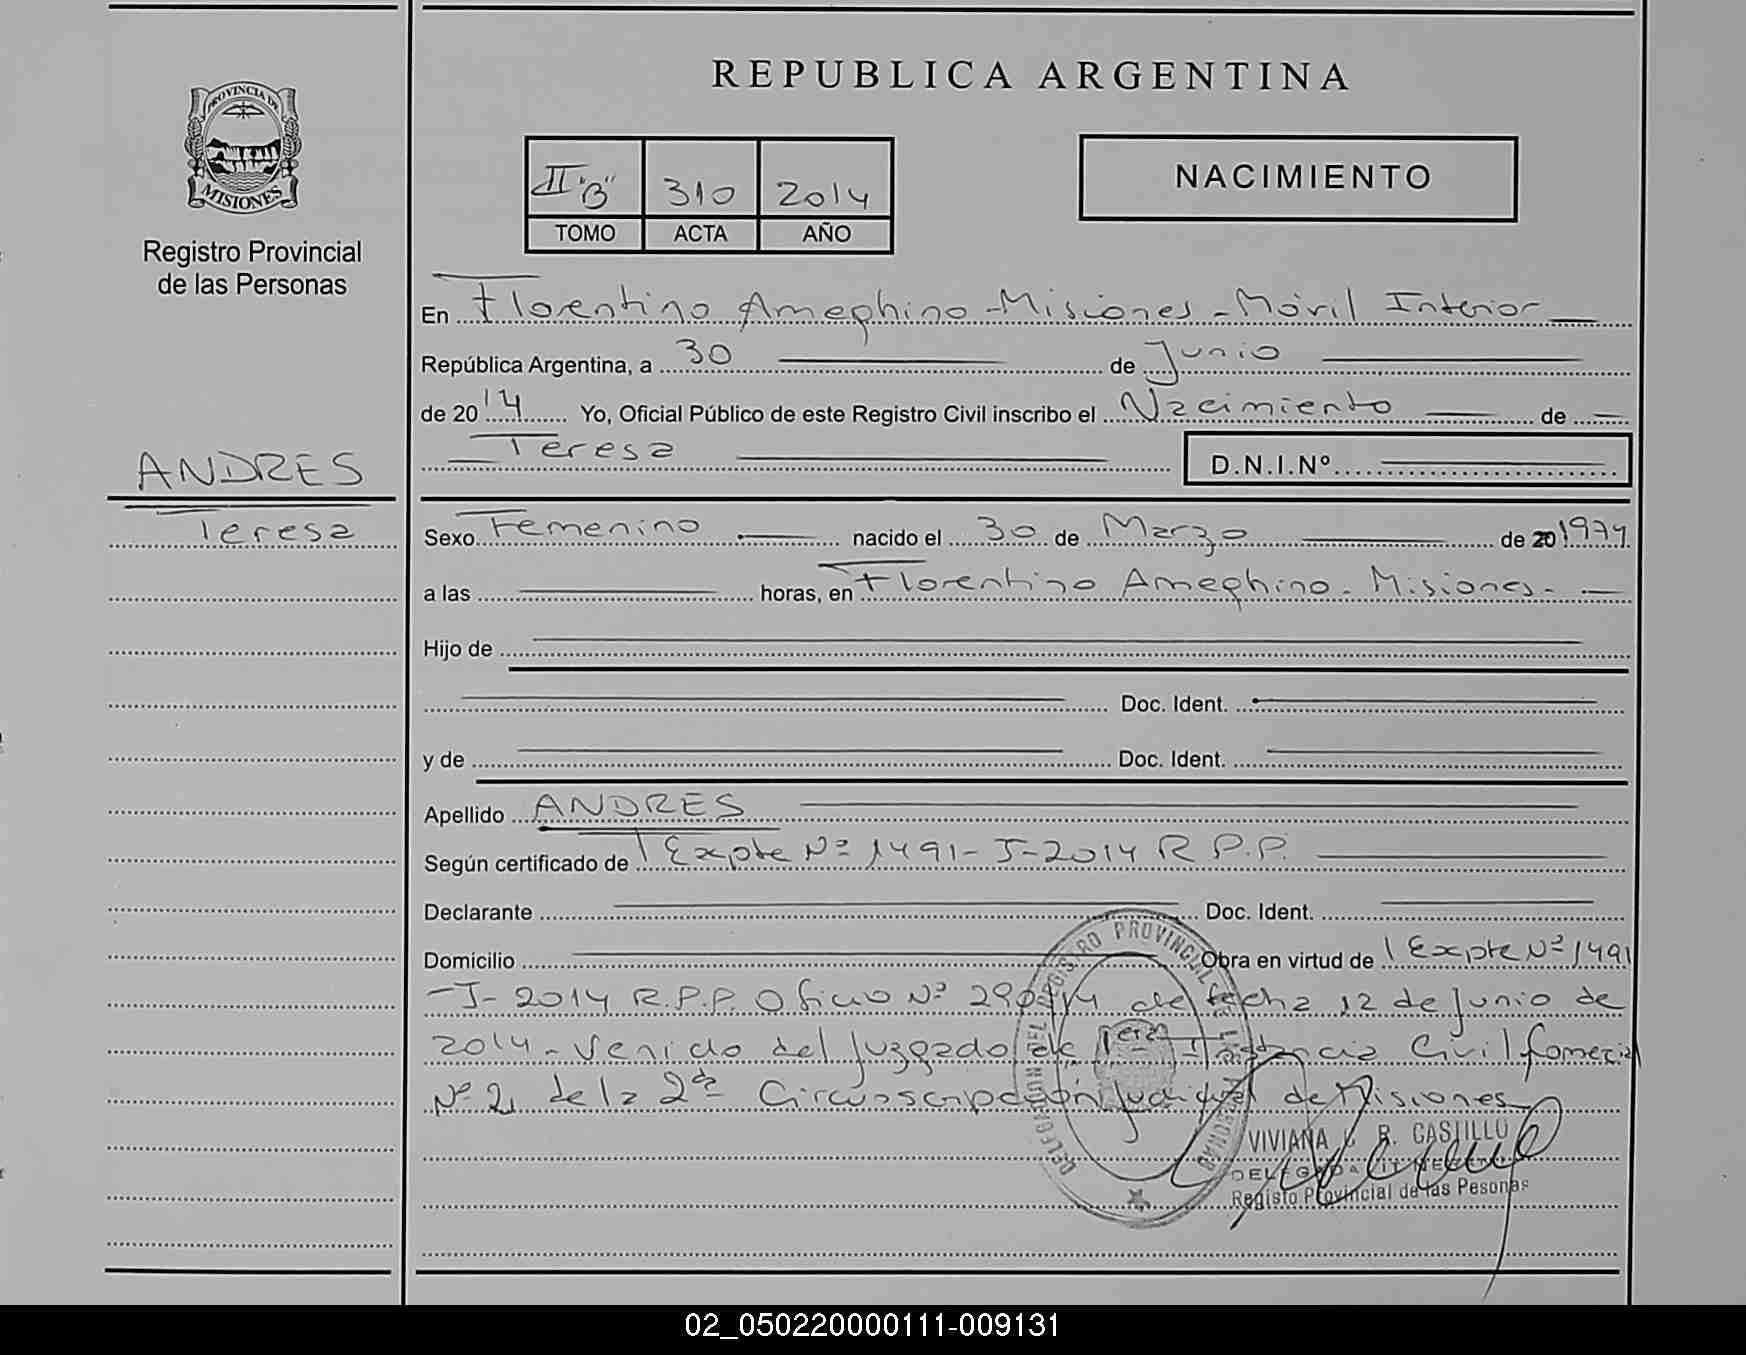 PROVINCIA DE
MISIONES
Registro Provincial
de las Personas
ANDRES
Teresa
REPUBLICA ARGENTINA
II "B" 310 2014
TOMO ACTA AÑO
NACIMIENTO
En Florentino Ameghino - Misiones - Móvil Interior
República Argentina, a 30 de Junio
de 2014 Yo, Oficial Público de este Registro Civil inscribo el Nacimiento de
Teresa D.N.I.Nº
Sexo Femenino nacido el 30 de Marzo de 1974
a las horas, en Florentino Ameghino - Misiones -
Hijo de
Doc. Ident.
y de Doc. Ident.
Apellido ANDRES
Según certificado de Expte Nº 1491-J-2014 R.P.P.
Declarante Doc. Ident.
Domicilio Obra en virtud de Expte Nº 1491
-J- 2014 R.P.P. Oficio Nº de fecha 12 de Junio de
2014 - Venido del Juzgado de 1era Instancia Civil Comercial
Nº 2, de la 2da Circunscripción Judicial de Misiones
DELEGACION DEL REGISTRO PROVINCIAL DE LAS PERSONAS
VIVIANA L. R. CASTILLO
DELEGADA ITINERANTE
Registo Provincial de las Pesonas
02_050220000111-009131